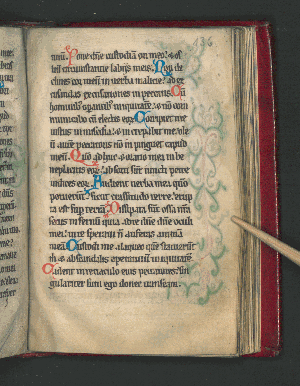 136
tuū. Pone dñe custodiā ori meo: & os
tiū circumstantie labiis meis. Non de
clines cor meū in verba malicie: ad ex
cusandas excusationes in peccatis. Cū
hominib; opantib; iniquitatē: & nō com
municabo cū electis eoꝝ. Corripiet me
iustus in misericordia & increpabit me: ole
ū autē peccatoris nō inpinguet caput
meū. Qm̄ adhuc & oratio mea in be
neplacitis eoꝝ: absorti sunt iuncti petre
iudices eoꝝ. Audient verba mea quo
potuerunt: sicut crassitudo terre erup
ta est sup terrā. Dissipata sūt ossa nr̄a
secus infernū: quia ad te dñe dñe oculi
mei: in te speravi nō auferas animā
meā. Custodi me a laqueo quē statuerūt
m & a scandalis operantiū iniquitatē.
Cadent in retiaculo eius peccatores: sin
gulariter sum ego donec transeam.